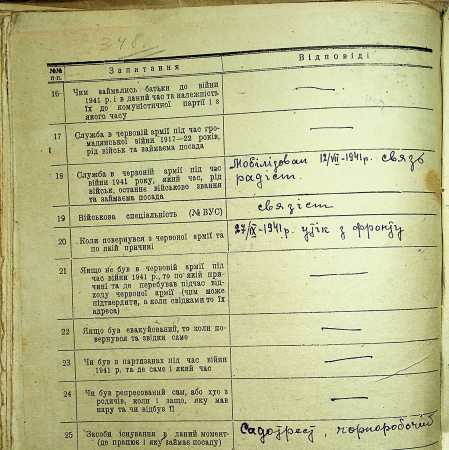 348.
№№ п.п. Запитання Відповіді
16 Чим займались батьки до війни
1941 р. і в даний час та належність
їх до комуністичної партії і з
якого часу —
17 Служба в червоній армії під час гро-
мадянської війни 1917—22 років,
рід військ та займаєма посада —
18 Служба в червоній армії під час
війни 1941 року, який час, рід
військ, останнє військове звання
та займаєма посада
Мобілізован 12/VII-1941 р. связь
радіст.
19 Військова спеціальність (№ ВУС) связіст
20 Коли повернувся з червоної армії та
по якій причині
27/IX-1941 р. утік з фронту
21 Якщо не був в червоній армії під
час війни 1941 р., то по якій при-
чині та де перебував підчас від-
ходу червоної армії (чим може
підтвердити, а коли свідками то їх
адреса) —
22 Якщо був евакуйований, то коли по-
вернувся та звідки саме —
23 Чи був в партизанах під час війни
1941 р. та де саме і який час —
24 Чи був репресований сам, або хто з
родичів, коли і защо, яку мав
кару та чи відбув її —
25 Засоби існування в даний момент-
(де працює і яку займає посаду)
Садотрест, чорноробочий